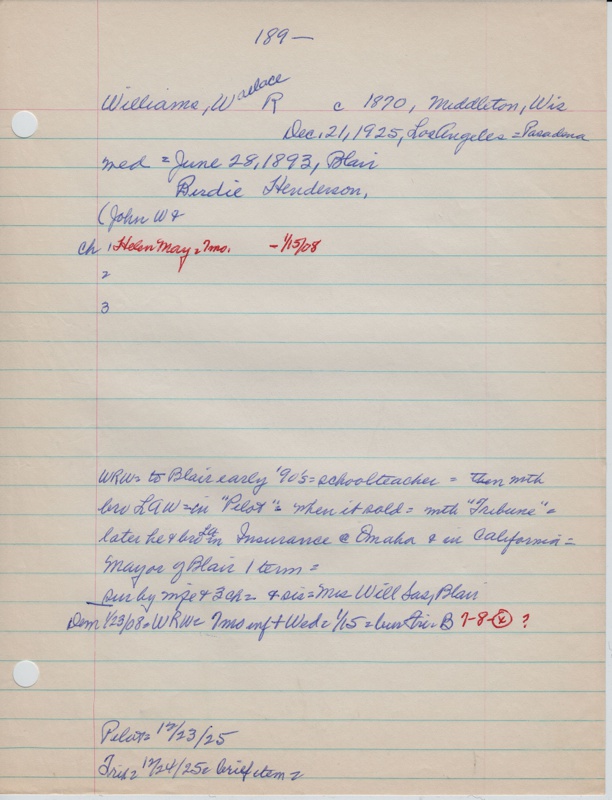 189—
Williams, Wallace R c 1870, Middleton, Wis
Dec. 21, 1925, Los Angeles = Pasadena
med = June 28, 1893, Blair
Birdie Henderson,
(John W &
ch 1 Helen May = 7mo. – 1/15/08
2
3
WRW = to Blair early '90's = schoolteacher = then mth
bro LAW = in "Pilot" = when it sold = mth "Tribune" =
later he & bro in Insurance @ Omaha & in California =
Mayor of Blair 1 term =
sur by wife & 3 ch = & sis = Mrs Will Sas, Blair
Dem 1/23/08 = WRW = 7mo inf + Wed = 1/15 = bur Fri = B 7-8-(x) ?
Pilot = 12/23/25
Trib = 12/24/25 = brief item =